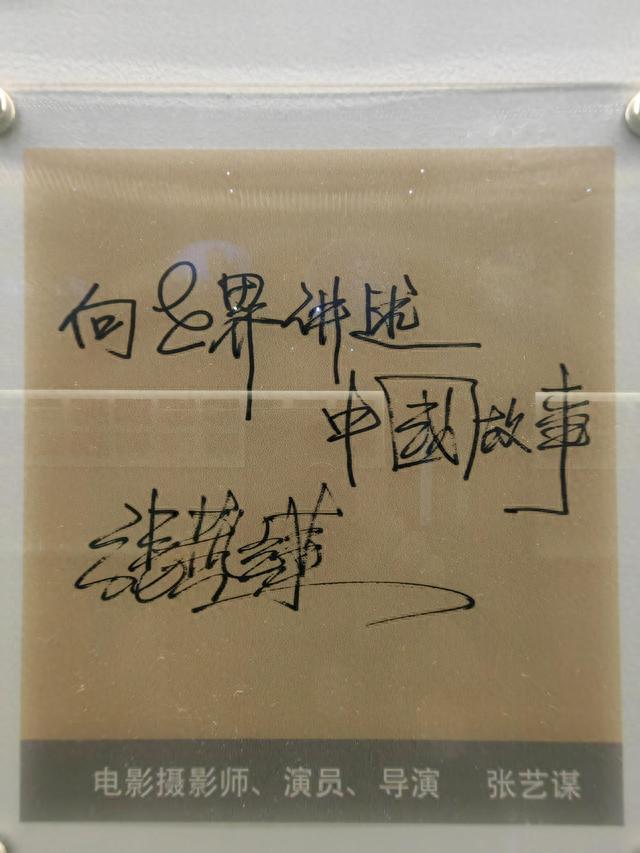 向世界讲述
中國故事
张艺谋
电影摄影师、演员、导演 张艺谋